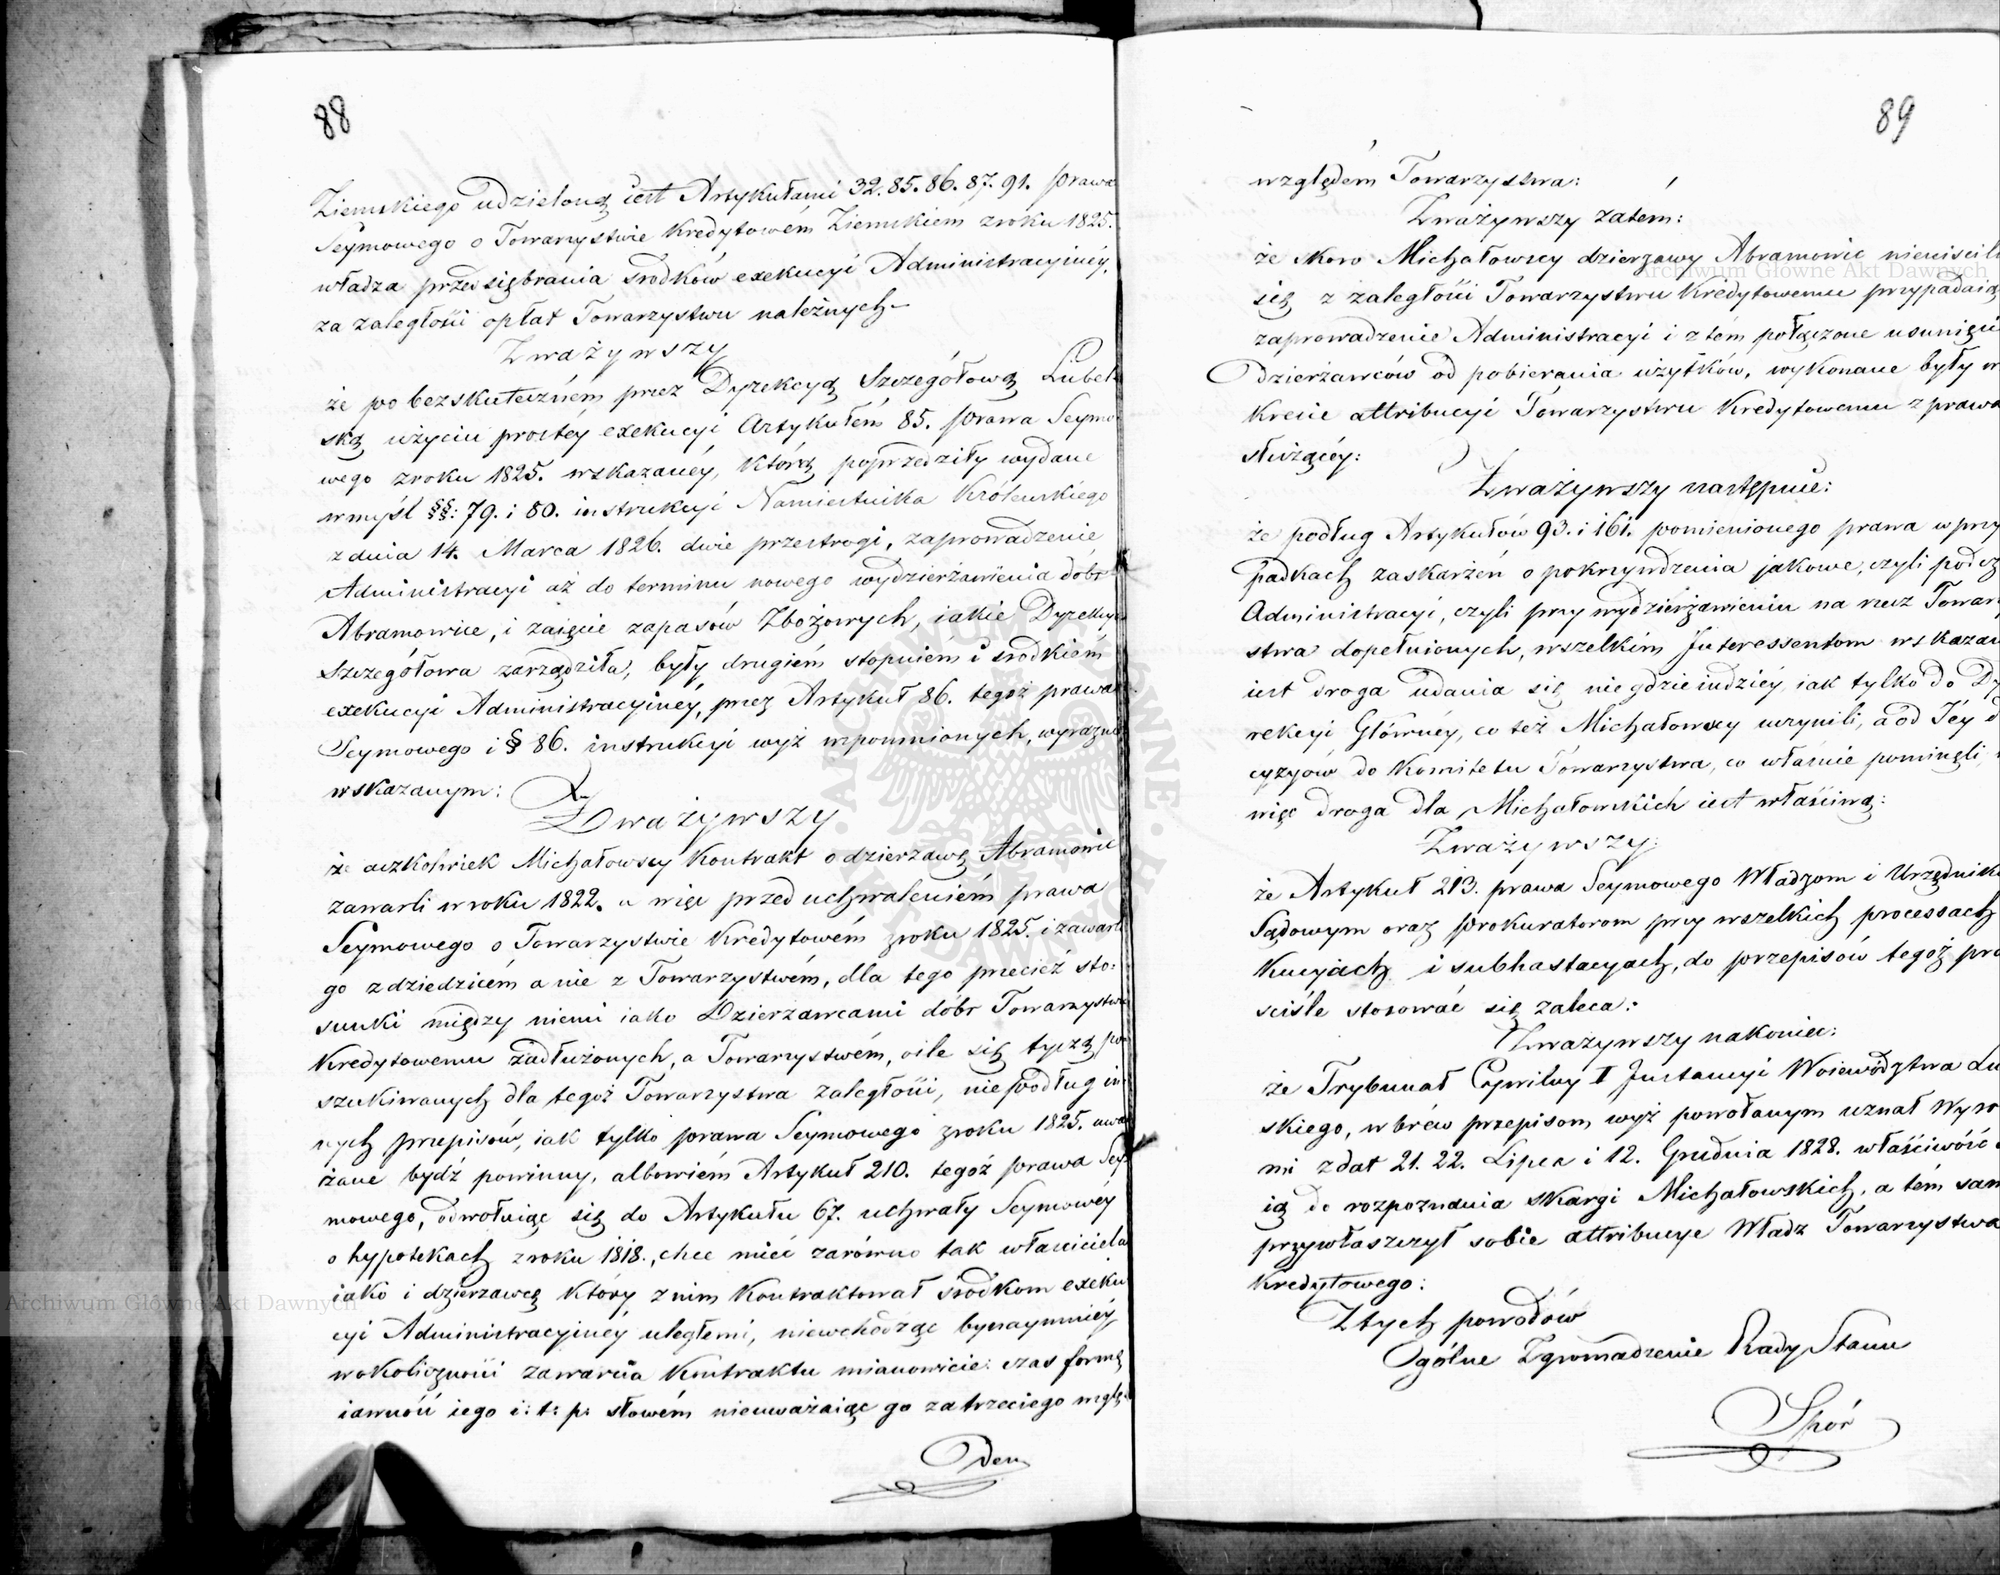 88
Ziemskiego udzieloną iest Artykułami 32. 85. 86. 87. 91. prawa
Seymowego o Towarzystwie Kredytowém Ziemskiém z roku 1825.
władza przedsiębrania srodków exekucyi Administracyinéy,
za zaległości opłat Towarzystwu należnych
Zważywszy
że po bezskuteczném przez Dyrekcyą Szczegółową Lubel-
ską użyciu prostéy exekucyi Artykułém 85. prawa Seymo
wego z roku 1825. wskazanéy, którą poprzedziły wydane
w myśl §§: 79. i 80. instrukcyi Namiestnika Królewskiego
z dnia 14. Marca 1826. dwie przestrogi, zaprowadzenie
Administracyi aż do terminu nowego wydzierżawienia dóbr
Abramowice, i zaięcie zapasów Zbożowych, iakie Dyrekcya
Szczegółowa zarządziła, były drugiém stopniem i srodkiém
exekucyi Administracyinéy, przez Artykuł 86. tegoż prawa
Seymowego i § 86. instrukcyi wyż wspomnionych, wyraznie
wskazanym:
Zważywszy
że aczkolwiek Michałowscy Kontrakt o dzierzawę Abramowic
zawarli w roku 1822. a więc przed uchwaleniém prawa
Seymowego o Towarzystwie Kredytowém z roku 1825. i zawarli
go z dziedzicém a nie z Towarzystwém, dla tego przecież sto:
sunki między niemi iako Dzierzawcami dóbr Towarzystwu
Kredytowemu zadłużonych, a Towarzystwém, oile się tyczą po
szukiwanych dla tegoż Towarzystwa zaległości, nie podług in
nych przepisów, iak tylko prawa Seymowego z roku 1825. uwa
żane bydź powinny, albowiém Artykuł 210. tegoż prawa Sey
mowego, odwołuiąc się do Artykułu 67. uchwały Seymowéy
o hypotekach z roku 1818., chce mieć zarówno tak właściciela
iako i dzierzawcę który z nim Kontraktował środkom exeku
cyi Administracyinéy uległemi, niewchodząc bynaymniéy
w okoliczności zawarcia Kontraktu mianowicie: czas formę
iawność iego i: t: p: słowém nieuważaiąc go za trzeciego wzglę-
dem
89
względém Towarzystwa:
Zważywszy zatem:
że skoro Michałowscy dzierzawcy Abramowic nieuiścili
się z zaległości Towarzystwu Kredytowemu przypadaią
zaprowadzenie Administracyi i z tém połączone usunięcie
dzierżawców od pobierania użytków, wykonane były w
Kresie attribucyi Towarzystwu Kredytowemu z prawa
służącéy:
Zważywszy następnie:
że podług Artykułów 93. i 161. pomienionego prawa w przy
padkach zaskarżeń o pokrzywdzenia jakowe, czyli podcz
Administracyi, czyli przy wydzierżawieniu na rzecz Towarzy
stwa dopełnionych, wszelkim Interessentom wskazan
iest droga udania się nie gdzie indziéy iak tylko do Dy
rekcyi Głównéy, co też Michałowscy uczynili, a od Téy d
cyzyów do Komitetu Towarzystwa, co właśnie pominęli,
więc droga dla Michałowskich iest właściwą:
Zważywszy:
że Artykuł 213. prawa Seymowego Władzom i Urzędnik
Sądowym oraz Prokuratorom przy wszelkich processach
kucyiach i subhastacyach, do przepisów tegoż pra
ściśle stosować się zaleca:
Zważywszy nakoniec:
że Trybunał Cywilny I Instancyi Woiewództwa Lu
skiego, wbrew przepisom wyż powołanym uznał Wyro
mi z dat 21. 22. Lipca i 12. Grudnia 1828. właściwość s
ią do rozpoznania skargi Michałowskich, a tém sam
przywłaszczył sobie attribucye Władz Towarzystwa
Kredytowego:
Z tych powodów
Ogólne Zgromadzenie Rady Stanu
Spór
Archiwum Główne Akt Dawnych
Archiwum Główne Akt Dawnych